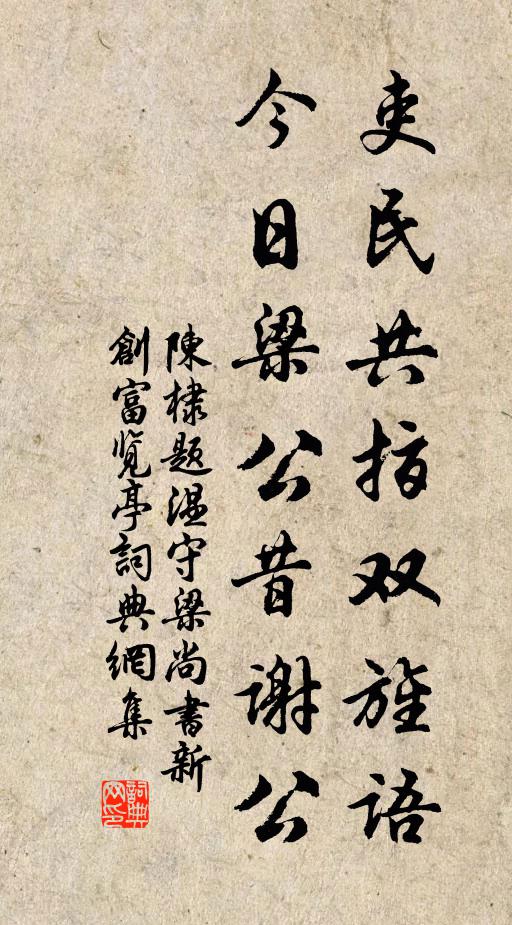 吏民共指双旌语
今日梁公昔谢公
陳棣题温守梁尚書新
創富覧亭詞典網集
詞典
网印